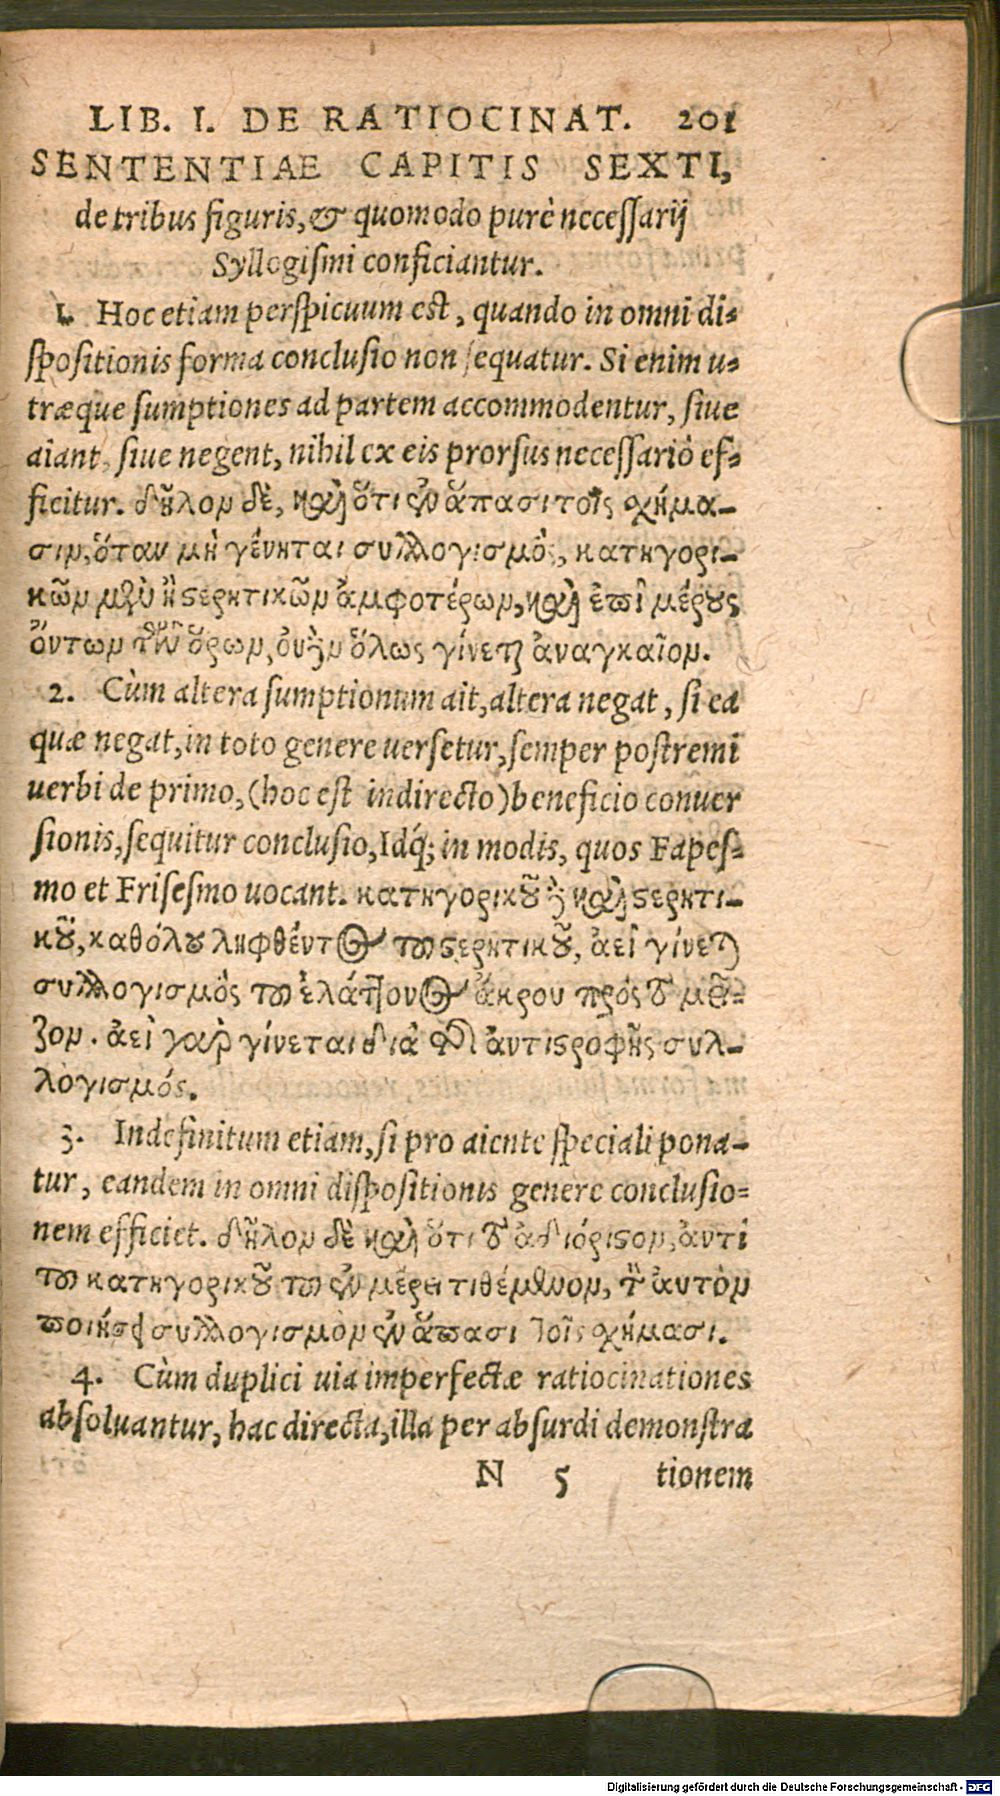 LIB. I. DE RATIOCINAT. 201
SENTENTIAE CAPITIS SEXTI,
de tribus figuris, & quomodo purè necessarij
Syllogismi conficiantur.
1. Hoc etiam perspicuum est, quando in omni di-
spositionis forma conclusio non sequatur. Si enim u-
træque sumptiones ad partem accommodentur, siue
aiant, siue negent, nihil ex eis prorsus necessariò ef-
ficitur. δῆλον δὲ, καὶ ὅτι ἐν ἅπασι τοῖς χήμα-
σιν, ὅταν μὴ γένηται συλλογισμὸς, κατηγορι-
κῶν μὲν ἢ ϛερητικῶν ἀμφοτέρων, καὶ ἐπὶ μέρους
ὄντων τῶν ὅρων, οὐδὲν ὅλως γίνεται ἀναγκαῖον.
2. Cùm altera sumptionum ait, altera negat, si ea
quæ negat, in toto genere uersetur, semper postremi
uerbi de primo, (hoc est indirecto) beneficio conuer
sionis, sequitur conclusio, Idq́; in modis, quos Fapes-
mo et Frisesmo uocant. κατηγορικοῦ δὲ καὶ ϛερητι-
κοῦ, καθόλου ληφθέντος τοῦ ϛερητικοῦ, ἀεὶ γίνεται
συλλογισμὸς τοῦ ἐλάττονος ἄκρου πρὸς τὸ μεῖ-
ζον. ἀεὶ γὰρ γίνεται διὰ τῆς ἀντιϛροφῆς συλ-
λογισμός.
3. Indefinitum etiam, si pro aiente speciali pona-
tur, eandem in omni dispositionis genere conclusio-
nem efficiet. δῆλον δὲ καὶ ὅτι τὸ ἀδιόριϛον, ἀντὶ
τοῦ κατηγορικοῦ τοῦ ἐν μέρει τιθέμενον, τὸν αὐτὸν
ποιήσει συλλογισμὸν ἐν ἅπασι τοῖς χήμασι.
4. Cùm duplici uia imperfectæ ratiocinationes
absoluantur, hac directa, illa per absurdi demonstra
N 5 tionem
Digitalisierung gefördert durch die Deutsche Forschungsgemeinschaft - DFG